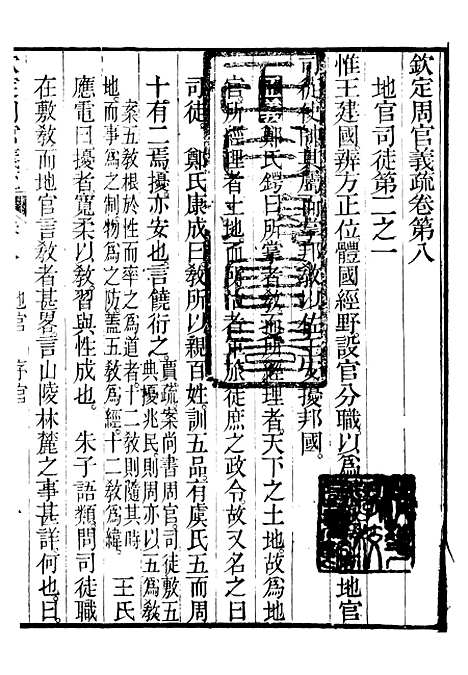 欽定周官義疏卷第八
地官司徒第二之一
惟王建國辨方正位體國經野設官分職以為
地官
司徒使帥其屬而掌邦敎以佐王安擾邦國
鄭氏鍔曰所掌者敎而所經理者天下之土地故為地
官所經理者土地而所治者
徒庶之政令故又名之曰
司徒 鄭氏康成曰敎所以親百姓訓五品有虞氏五而周
十有二焉擾亦安也言饒衍之
賈疏案尚書周官司徒敷五
典擾兆民則周亦以五為敎
案五敎根於性而率之為道者十二敎則隨其時
地而事為之制物為之防蓋五敎為經十二敎為緯
王氏
應電曰擾者寬柔以敎習與性成也 朱子語類問司徒職
在敷敎而地官言敎者甚畧言山陵林麓之事甚詳何也曰
地官 序官